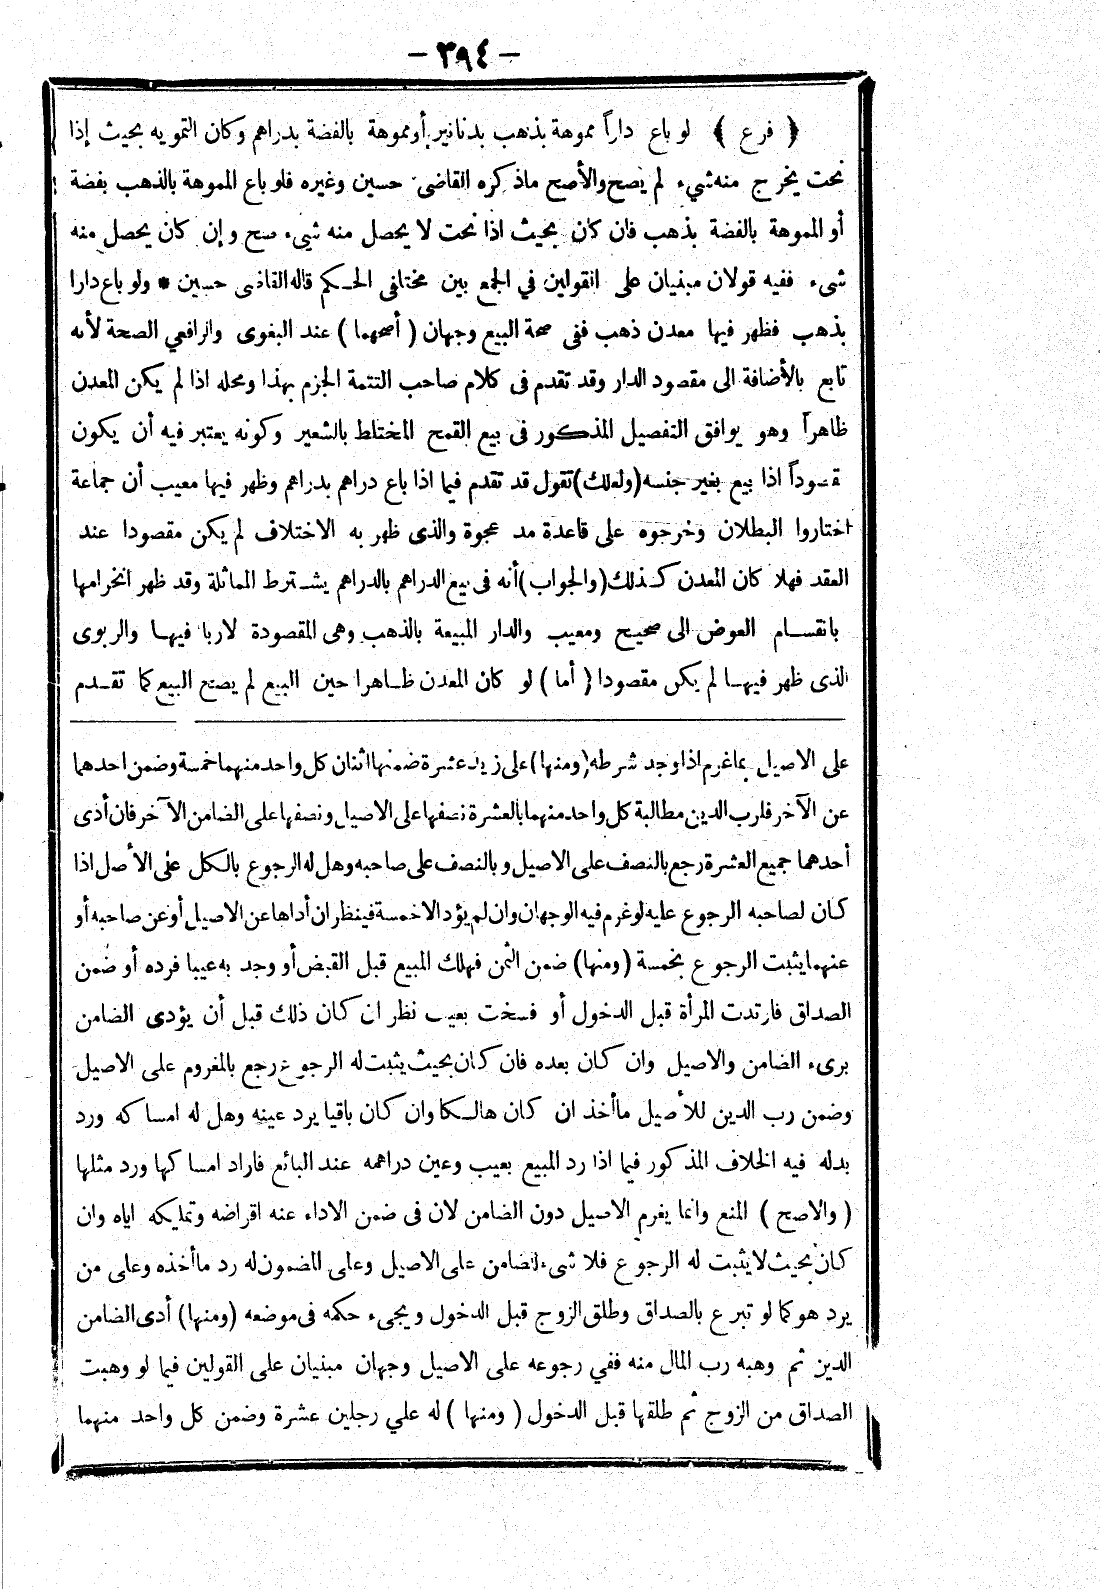 — ٣٩٤ —
﴿ فرع ﴾ لو باع داراً مموهة بذهب بدنانير أو مموهة بالفضة بدراهم وكان التمويه بحيث إذا
نحت يخرج منه شيء لم يصح والأصح ماذكره القاضى حسين وغيره فلو باع المموهة بالذهب بفضة
أو المموهة بالفضة بذهب فان كان بحيث اذا نحت لا يحصل منه شيء صح وإن كان يحصل منه
شىء ففيه قولان مبنيان على القولين في الجمع بين مختلفى الحكم قاله القاضى حسين * ولو باع دارا
بذهب فظهر فيها معدن ذهب ففى صحة البيع وجهان ( أصحهما ) عند البغوى والرافعي الصحة لأنه
تابع بالأضافة الى مقصود الدار وقد تقدم فى كلام صاحب التتمة الجزم بهذا ومحله اذا لم يكن المعدن
ظاهراً وهو يوافق التفصيل المذكور فى بيع القمح المختلط بالشعير وكونه يعتبر فيه أن يكون
قصوداً اذا بيع بغير جنسه (ولعلك) تقول قد تقدم فيما اذا باع دراهم بدراهم وظهر فيها معيب أن جماعة
اختاروا البطلان وخرجوه على قاعدة مد عجوة والذى ظهر به الاختلاف لم يكن مقصودا عند
العقد فهلا كان المعدن كذلك (والجواب) أنه فى بيع الدراهم بالدراهم يشترط المماثلة وقد ظهر انخرامها
بانقسام العوض الى صحيح ومعيب والدار المبيعة بالذهب وهى المقصودة لاربا فيها والربوى
الذى ظهر فيها لم يكن مقصودا ( أما ) لو كان المعدن ظاهرا حين البيع لم يصح البيع كما تقدم
على الاصيل بماغرم اذا وجد شرطه (ومنها) على زيد عشرة ضمنها اثنان كل واحد منهما خمسة وضمن احدهما
عن الآخر فلرب الدين مطالبة كل واحد منهما بالعشرة نصفها على الاصيل ونصفها على الضامن الآخر فان أدى
أحدهما جميع العشرة رجع بالنصف على الاصيل وبالنصف على صاحبه وهل له الرجوع بالكل على الأصل اذا
كان لصاحبه الرجوع عليه لو غرم فيه الوجهان وان لم يؤد الا خمسة فينظر ان أداها عن الاصيل أو عن صاحبه أو
عنهما يثبت الرجوع بخمسة (ومنها) ضمن الثمن فهلك المبيع قبل القبض أو وجد به عيبا فرده أو ضمن
الصداق فارتدت المرأة قبل الدخول أو فسخت بعيب نظر ان كان ذلك قبل أن يؤدى الضامن
برىء الضامن والاصيل وان كان بعده فان كان بحيث يثبت له الرجوع رجع بالمغروم على الاصيل
وضمن رب الدين للأصيل ماأخذ ان كان هالكا وان كان باقيا يرد عينه وهل له امساكه ورد
بدله فيه الخلاف المذكور فيما اذا رد المبيع بعيب وعين دراهمه عند البائع فاراد امساكها ورد مثلها
( والاصح ) المنع وانما يغرم الاصيل دون الضامن لان فى ضمن الاداء عنه اقراضه وتمليكه اياه وان
كان بحيث لا يثبت له الرجوع فلا شىء للضامن على الاصيل وعلى المضمون له رد ماأخذه وعلى من
يرد هو كما لو تبرع بالصداق وطلق الزوج قبل الدخول ويجىء حكمه فى موضعه (ومنها) أدى الضامن
الدين ثم وهبه رب المال منه ففي رجوعه على الاصيل وجهان مبنيان على القولين فيما لو وهبت
الصداق من الزوج ثم طلقها قبل الدخول ( ومنها ) له علي رجلين عشرة وضمن كل واحد منهما